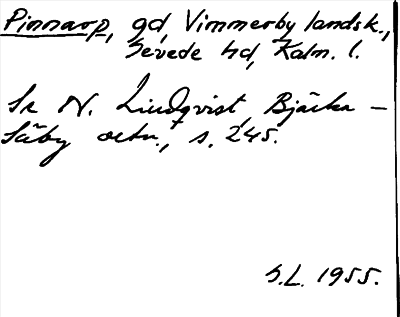 Pinnarp, gd, Vimmerby landsk.,
Sevede hd, Kalm. l.
Se N. Lindqvist, Bjärka-
Säby ortn., s. 245.
S.L. 1955.